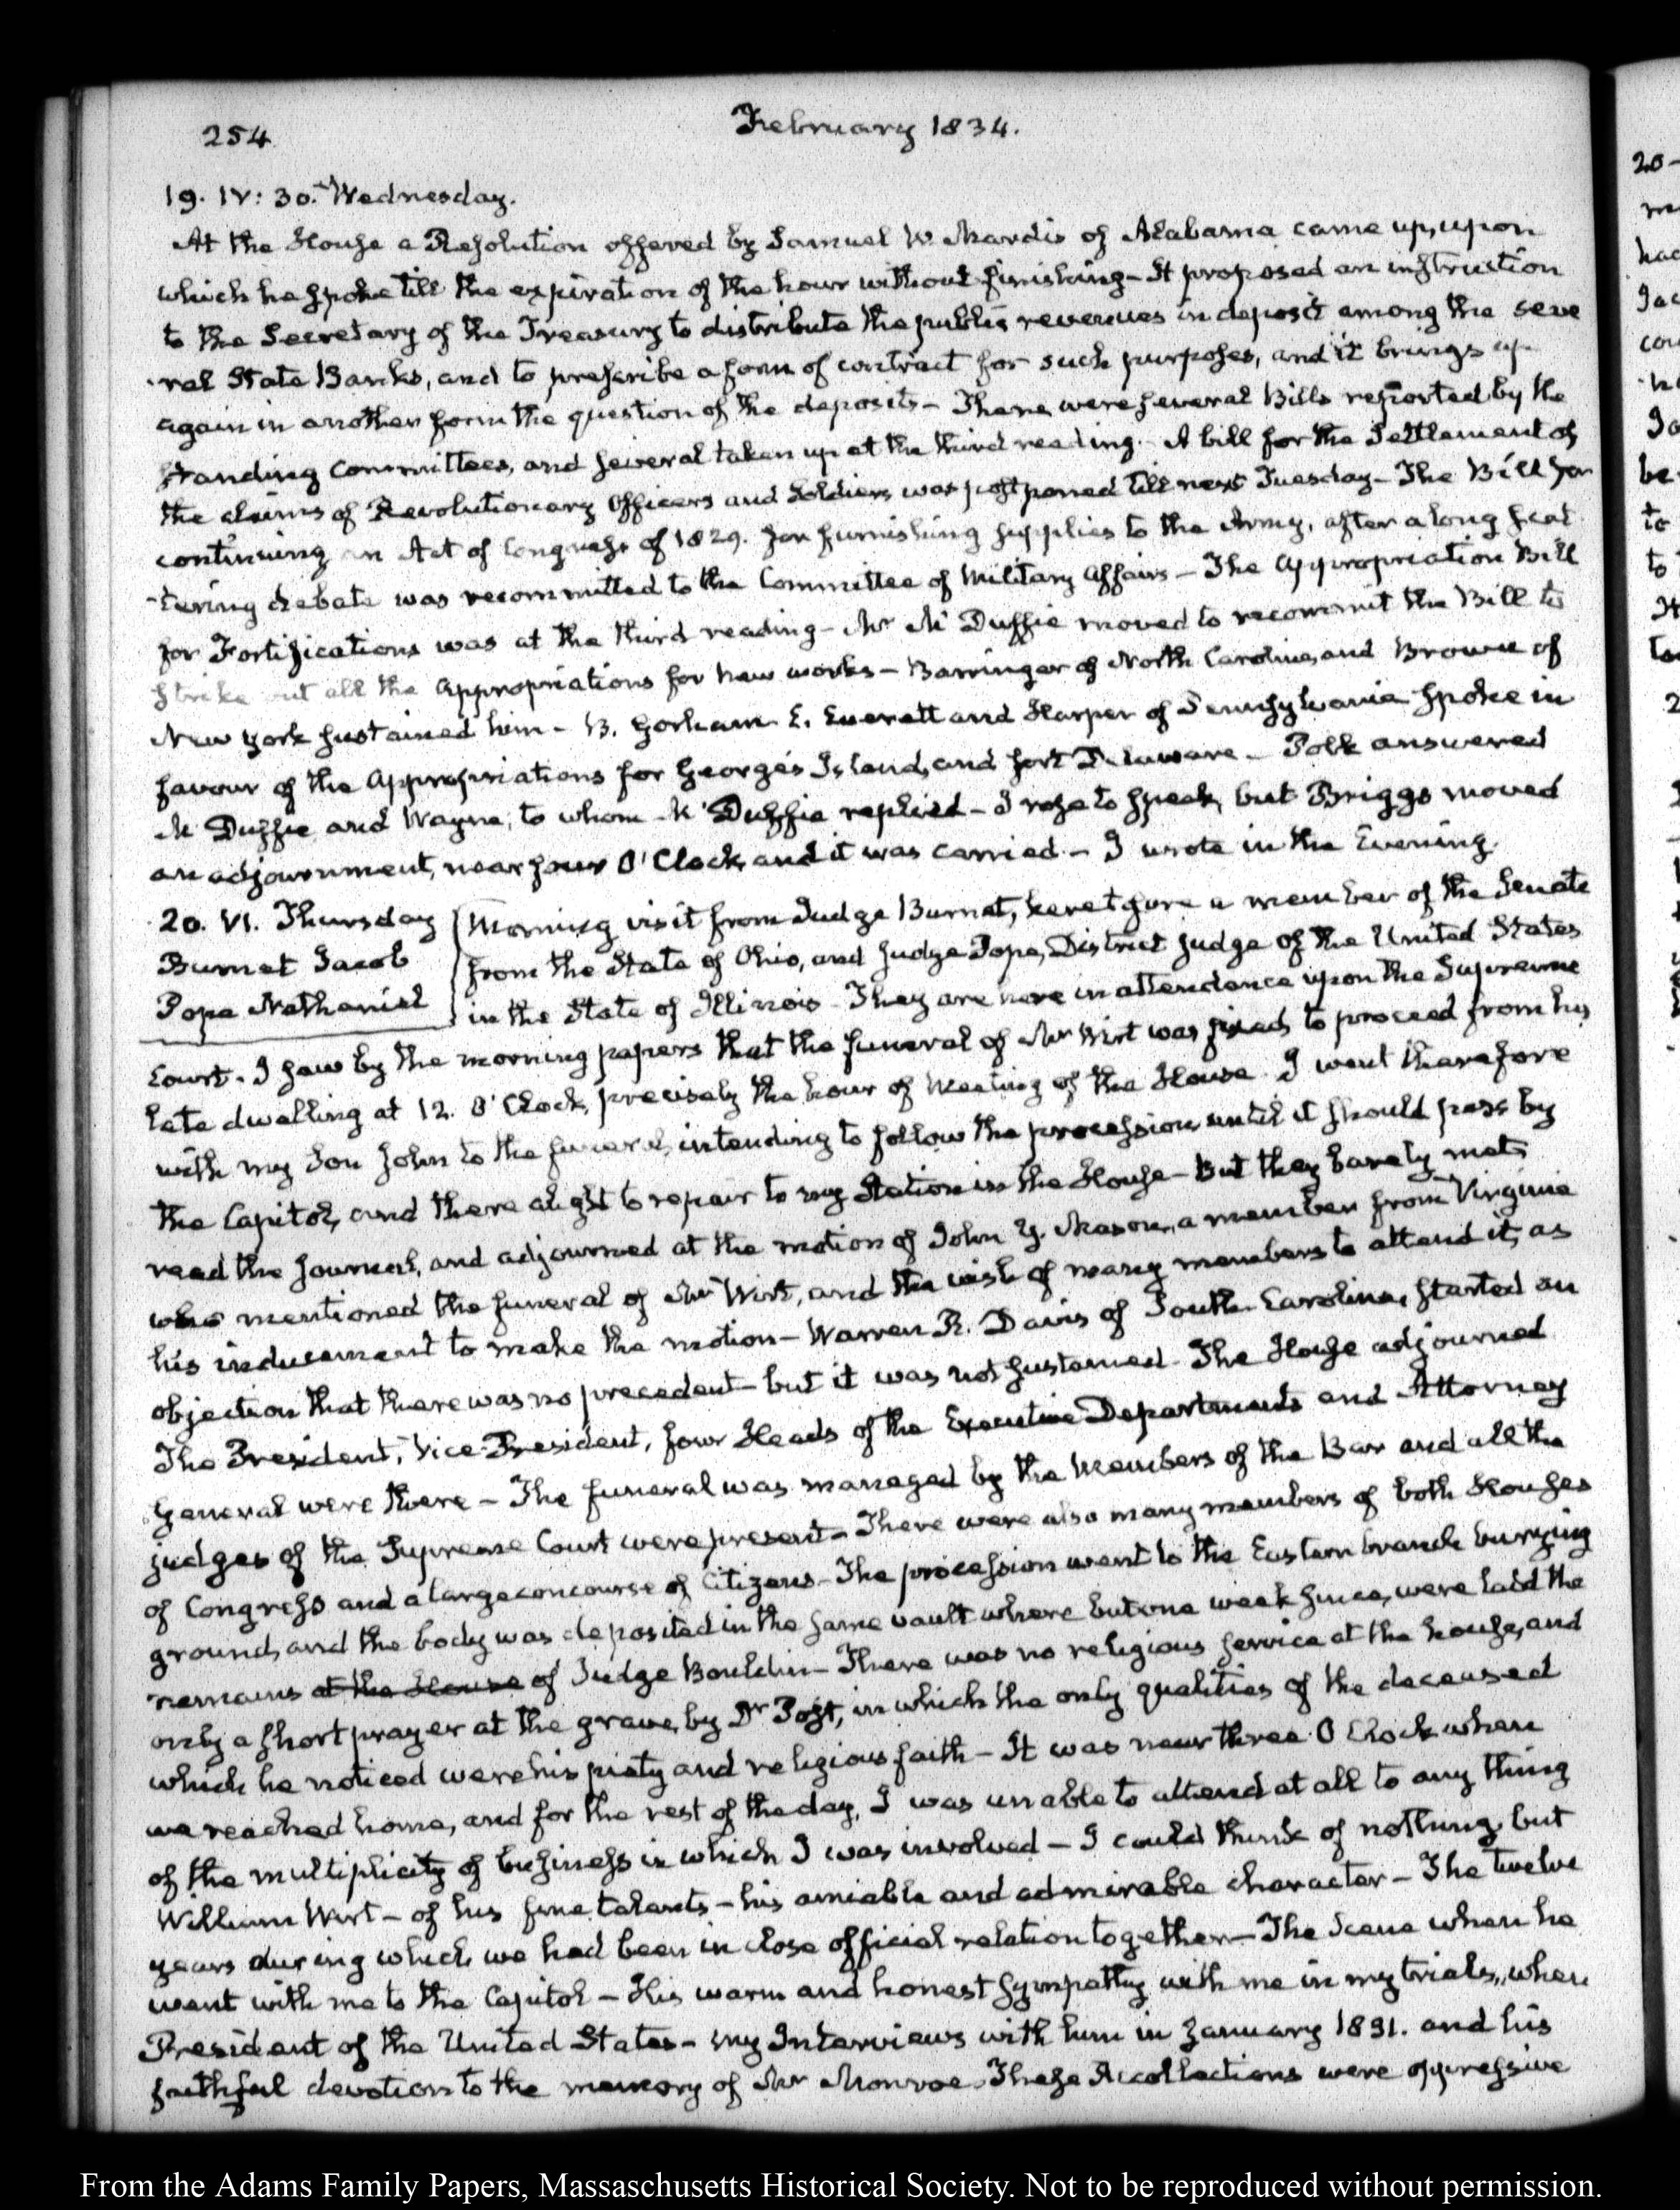 254
February 1834.
19. IV: 30. Wednesday.
At the House a Resolution offered by Samuel W. Mardis of Alabama came up, upon
which he spoke till the expiration of the hour without finishing – It proposed an instruction
to the Secretary of the Treasury to distribute the public revenues in deposit among the seve
ral State Banks, and to prescribe a form of contract for such purposes, and it brings up
again in another form the question of the deposits – There were several Bills reported by the
standing Committees, and several taken up at the third reading. A bill for the Settlement of
the claims of Revolutionary Officers and Soldiers was postponed till next Tuesday – The Bill for
continuing an Act of Congress of 1829. for furnishing supplies to the Army, after a long scat
-tering debate was recommitted to the Committee of Military Affairs – The Appropriation Bill
for Fortifications was at the third reading – Mr McDuffie moved to recommit the Bill to
strike out all the Appropriations for new works – Barringer of North Carolina, and Brown of
New York sustained him – B. Gorham E. Everett and Harper of Pennsylvania spoke in
favour of the Appropriations for George's Island, and fort Delaware – Polk answered
McDuffie and Wayne, to whom McDuffie replied – I rose to speak, but Briggs moved
an adjournment, near four O'Clock, and it was carried – I wrote in the Evening.
20. VI. Thursday
Burnet Jacob
Pope Nathaniel
Morning visit from Judge Burnet, heretofore a member of the Senate
from the State of Ohio, and Judge Pope, District Judge of the United States
in the State of Illinois – They are here in attendance upon the Supreme
Court. I saw by the morning papers that the funeral of Mr Wirt was fixed, to proceed from his
late dwelling at 12. O'Clock, precisely the hour of Meeting of the House. I went therefore
with my Son John to the funeral, intending to follow the procession, until it should pass by
the Capitol, and there alight to repair to my Station in the House – But they barely met,
read the journal, and adjourned at the motion of John Y. Mason, a member from Virginia
who mentioned the funeral of Mr Wirt, and the wish of many members to attend it, as
his inducement to make the motion – Warren R. Davis of South Carolina, started an
objection that there was no precedent – but it was not sustained – The House adjourned
The President, Vice-President, four Heads of the Executive Departments and Attorney
General were there – The funeral was managed by the Members of the Bar and all the
judges of the Supreme Court were present – There were also many members of both Houses
of Congress and a large concourse of Citizens – The procession went to the Eastern branch burying
ground, and the body was deposited in the same vault where but one week since, were laid the
remains at the House of Judge Bouldin – There was no religious service at the house, and
only a short prayer at the grave, by Dr Post, in which the only qualities of the deceased
which he noticed were his piety and religious faith – It was near three O'Clock when
we reached home, and for the rest of the day, I was unable to attend at all to any thing
of the multiplicity of business in which I was involved – I could think of nothing but
William Wirt – of his fine talents – his amiable and admirable character – The twelve
years during which we had been in close official relation together – The Scene when he
went with me to the Capitol – His warm and honest sympathy with me in my trials, when
President of the United States – my Interviews with him in January 1831. and his
faithful devotion to the memory of Mr Monroe. These Recollections were oppressive
From the Adams Family Papers, Massachusetts Historical Society. Not to be reproduced without permission.